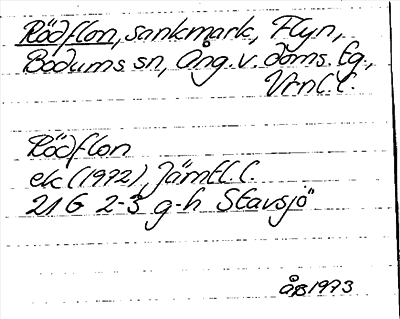 Rödflon, sankmark, Flyn,
Bodums sn, Ång.v. doms. fg.,
Vrnl. l.
Rödflon
ek (1972), Jämtl. l.
21 G 2-3 g-h Stavsjö"
åb 1973